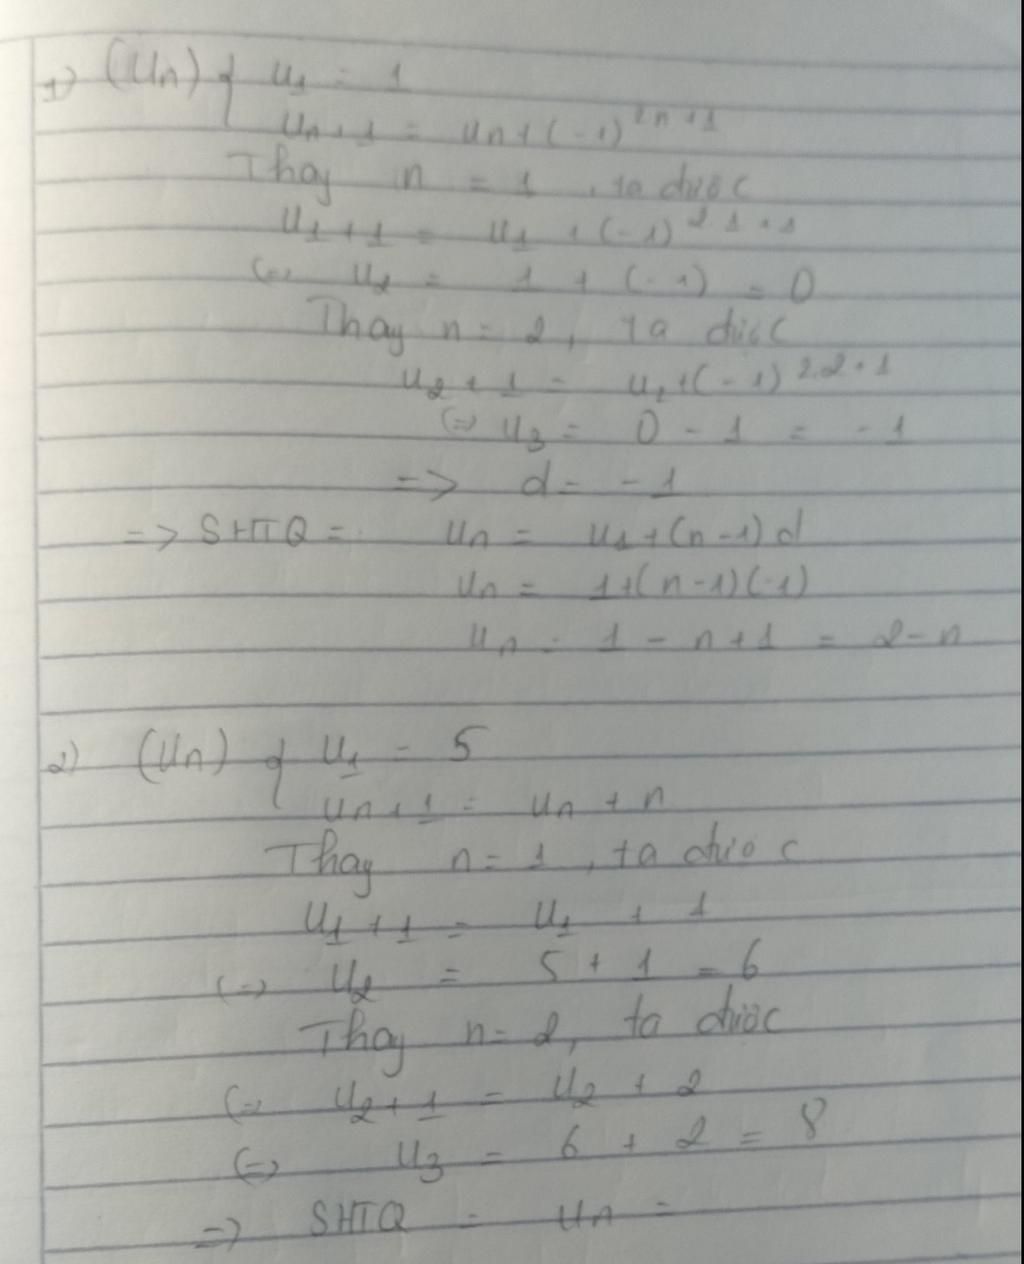 1) (Un) { u1 = 1
un+1 = un+(-1)^2n+1
Thay n = 1, ta được
u1+1 = u1 + (-1)^2.1+1
(=) u2 = 1 + (-1) = 0
Thay n = 2, ta được
u2+1 = u2+(-1)^2.2+1
(=) u3 = 0 - 1 = -1
=> d = -1
=> SHTQ = un = u1+(n-1)d
un = 1+(n-1)(-1)
un = 1 - n+1 = 2-n
2) (Un) { u1 = 5
un+1 = un + n
Thay n = 1, ta được
u1+1 = u1 + 1
(=) u2 = 5 + 1 = 6
Thay n = 2, ta được
(=) u2+1 = u2 + 2
(=) u3 = 6 + 2 = 8
=) SHTQ = un =